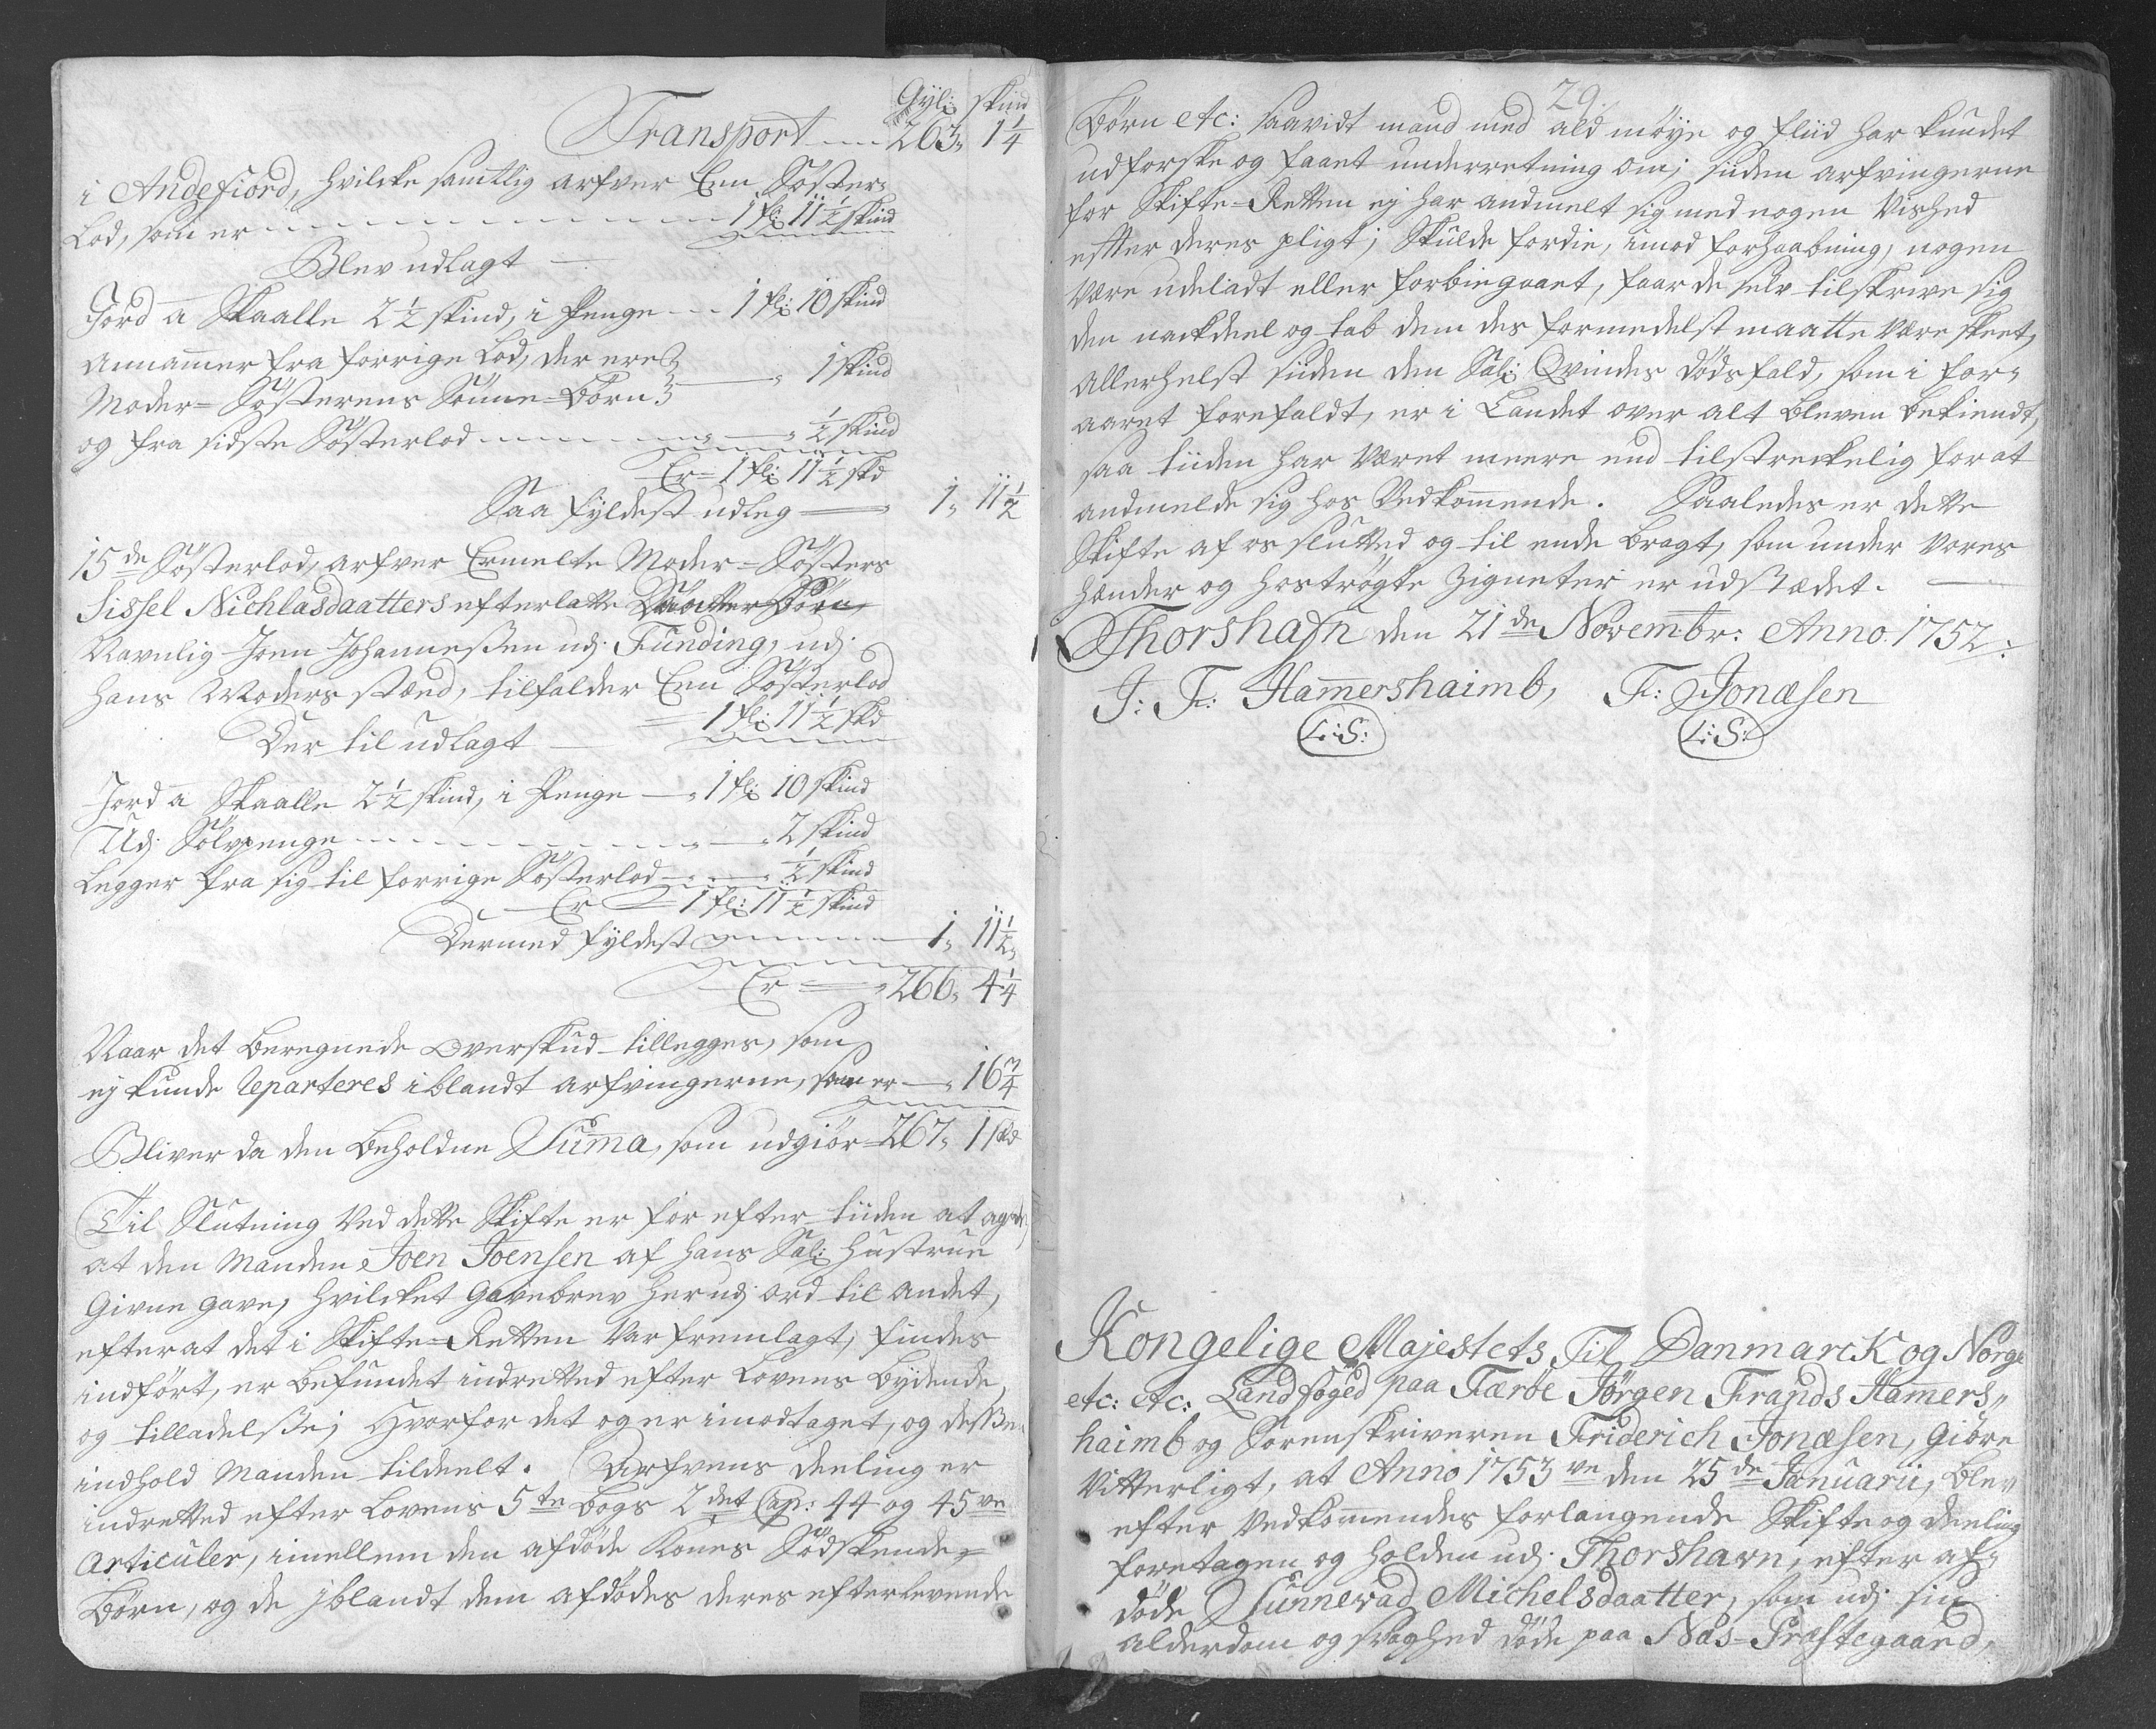 Gyl: skind
Transport 263, 1 1/4
i Andefiord, hvilcke samtlig arfver Een Söster-
Lod, som er 1 fl: 11 1/2 skind
Blev udlagt
Jord a Skaalle 2 1/2 skind, i Penge 1 fl: 10 skind
Annammer fra forrige Lod, der ere
Moder-Søsterens Sönne-Börn 1 skind
og fra sidste Søsterlod 1/2 skind
Er 1 fl: 11 1/2 skd
Saa fyldest udleg 1, 11 1/2
15de Søsterlod, arfver Ermelte Moder-Søsters
Sissel Nichlasdaatters efterlatte Daatter Børn,
Navnlig Joen Johannesen udj Funding, udj
hans Moders stæd, tilfalder Een Søsterlod
1 fl: 11 1/2 skd
Der til udlagt
Jord a Skaalle 2 1/2 skind, i Penge 1 fl: 10 skind
Udj Sölvpenge 2 skind
Legger fra sig til forrige Søsterlod 1/2 skind
Er 1 fl: 11 1/2 skind
Dermed fyldest 1, 11 1/2
Er 266, 4 1/4
Naar det beregnede Overskud tillegges, som
ej kunde reparteres iblandt arfvingerne, som er 16 3/4
Bliver da den beholdne Suma, som udgiör 267, 1 skd
Til Slutning ved dette Skifte er for efter tiiden at agte,
at den Manden Joen Joensen af hans Sal: Hustrue
givne gave, hvilcket gavebrev herudj ord til andet,
efter at det i Skifte-Retten var fremlagt, findes
indfört, er befundet indretted efter Lovens bydende,
og tilladelse; Hvorfor det og er imodtaget, og desse
indhold Manden tildeelt. Arfvens deeling er
indretted efter Lovens 5te bogs 2det Cap: 44 og 45ve
Articuler, imellem den afdöde Kones Södskende-
Börn, og de jblandt dem afdödes deres efterlevende
29.
Börn etc: saavidt mand med ald möye og fliid har kundet
udforske og faaet underretning om; siiden arfvingerne
for Skifte-Retten ej har andmelt sig med nogen Vished
efter deres pligt; Skulde fordie, imod forhaabning, nogen
være udeladt eller forbiegaaet, faar de selv tilskrive sig
den nackdeel og tab dem des formedelst maatte være skeet,
allerhelst siiden den Sal: Qvindes dödsfald, som i for-
aaret forefaldt, er i Landet over alt bleven bekiendt,
saa tiiden har været meere end tilstreckelig for at
andmelde sig hos Vedkommende. Saaledes er dette
Skifte af os slutted og til ende bragt, som under vores
Hænder og hoströgte Zigneter er udstædet.
Thorshafn den 21de Novembr: Anno 1752:
J: F: Hamershaimb, F: Jonæsen
L:S: L:S:
Kongelige Majestets Til Danmarck og Norge
etc: etc: Landfoged paa Færöe Jörgen Frands Hamers-
haimb og Sorenskriveren Friderich Jonæsen, giöre
Vitterligt, at Anno 1753ve den 25de Januarii, blev
efter Vedkommendes forlangende Skifte og deeling
foretagen og holden udj Thorshavn, efter af-
döde Sunnevad Michelsdaatter, som udj sin
alderdom og svaghed döde paa Næs-Præstegaard,